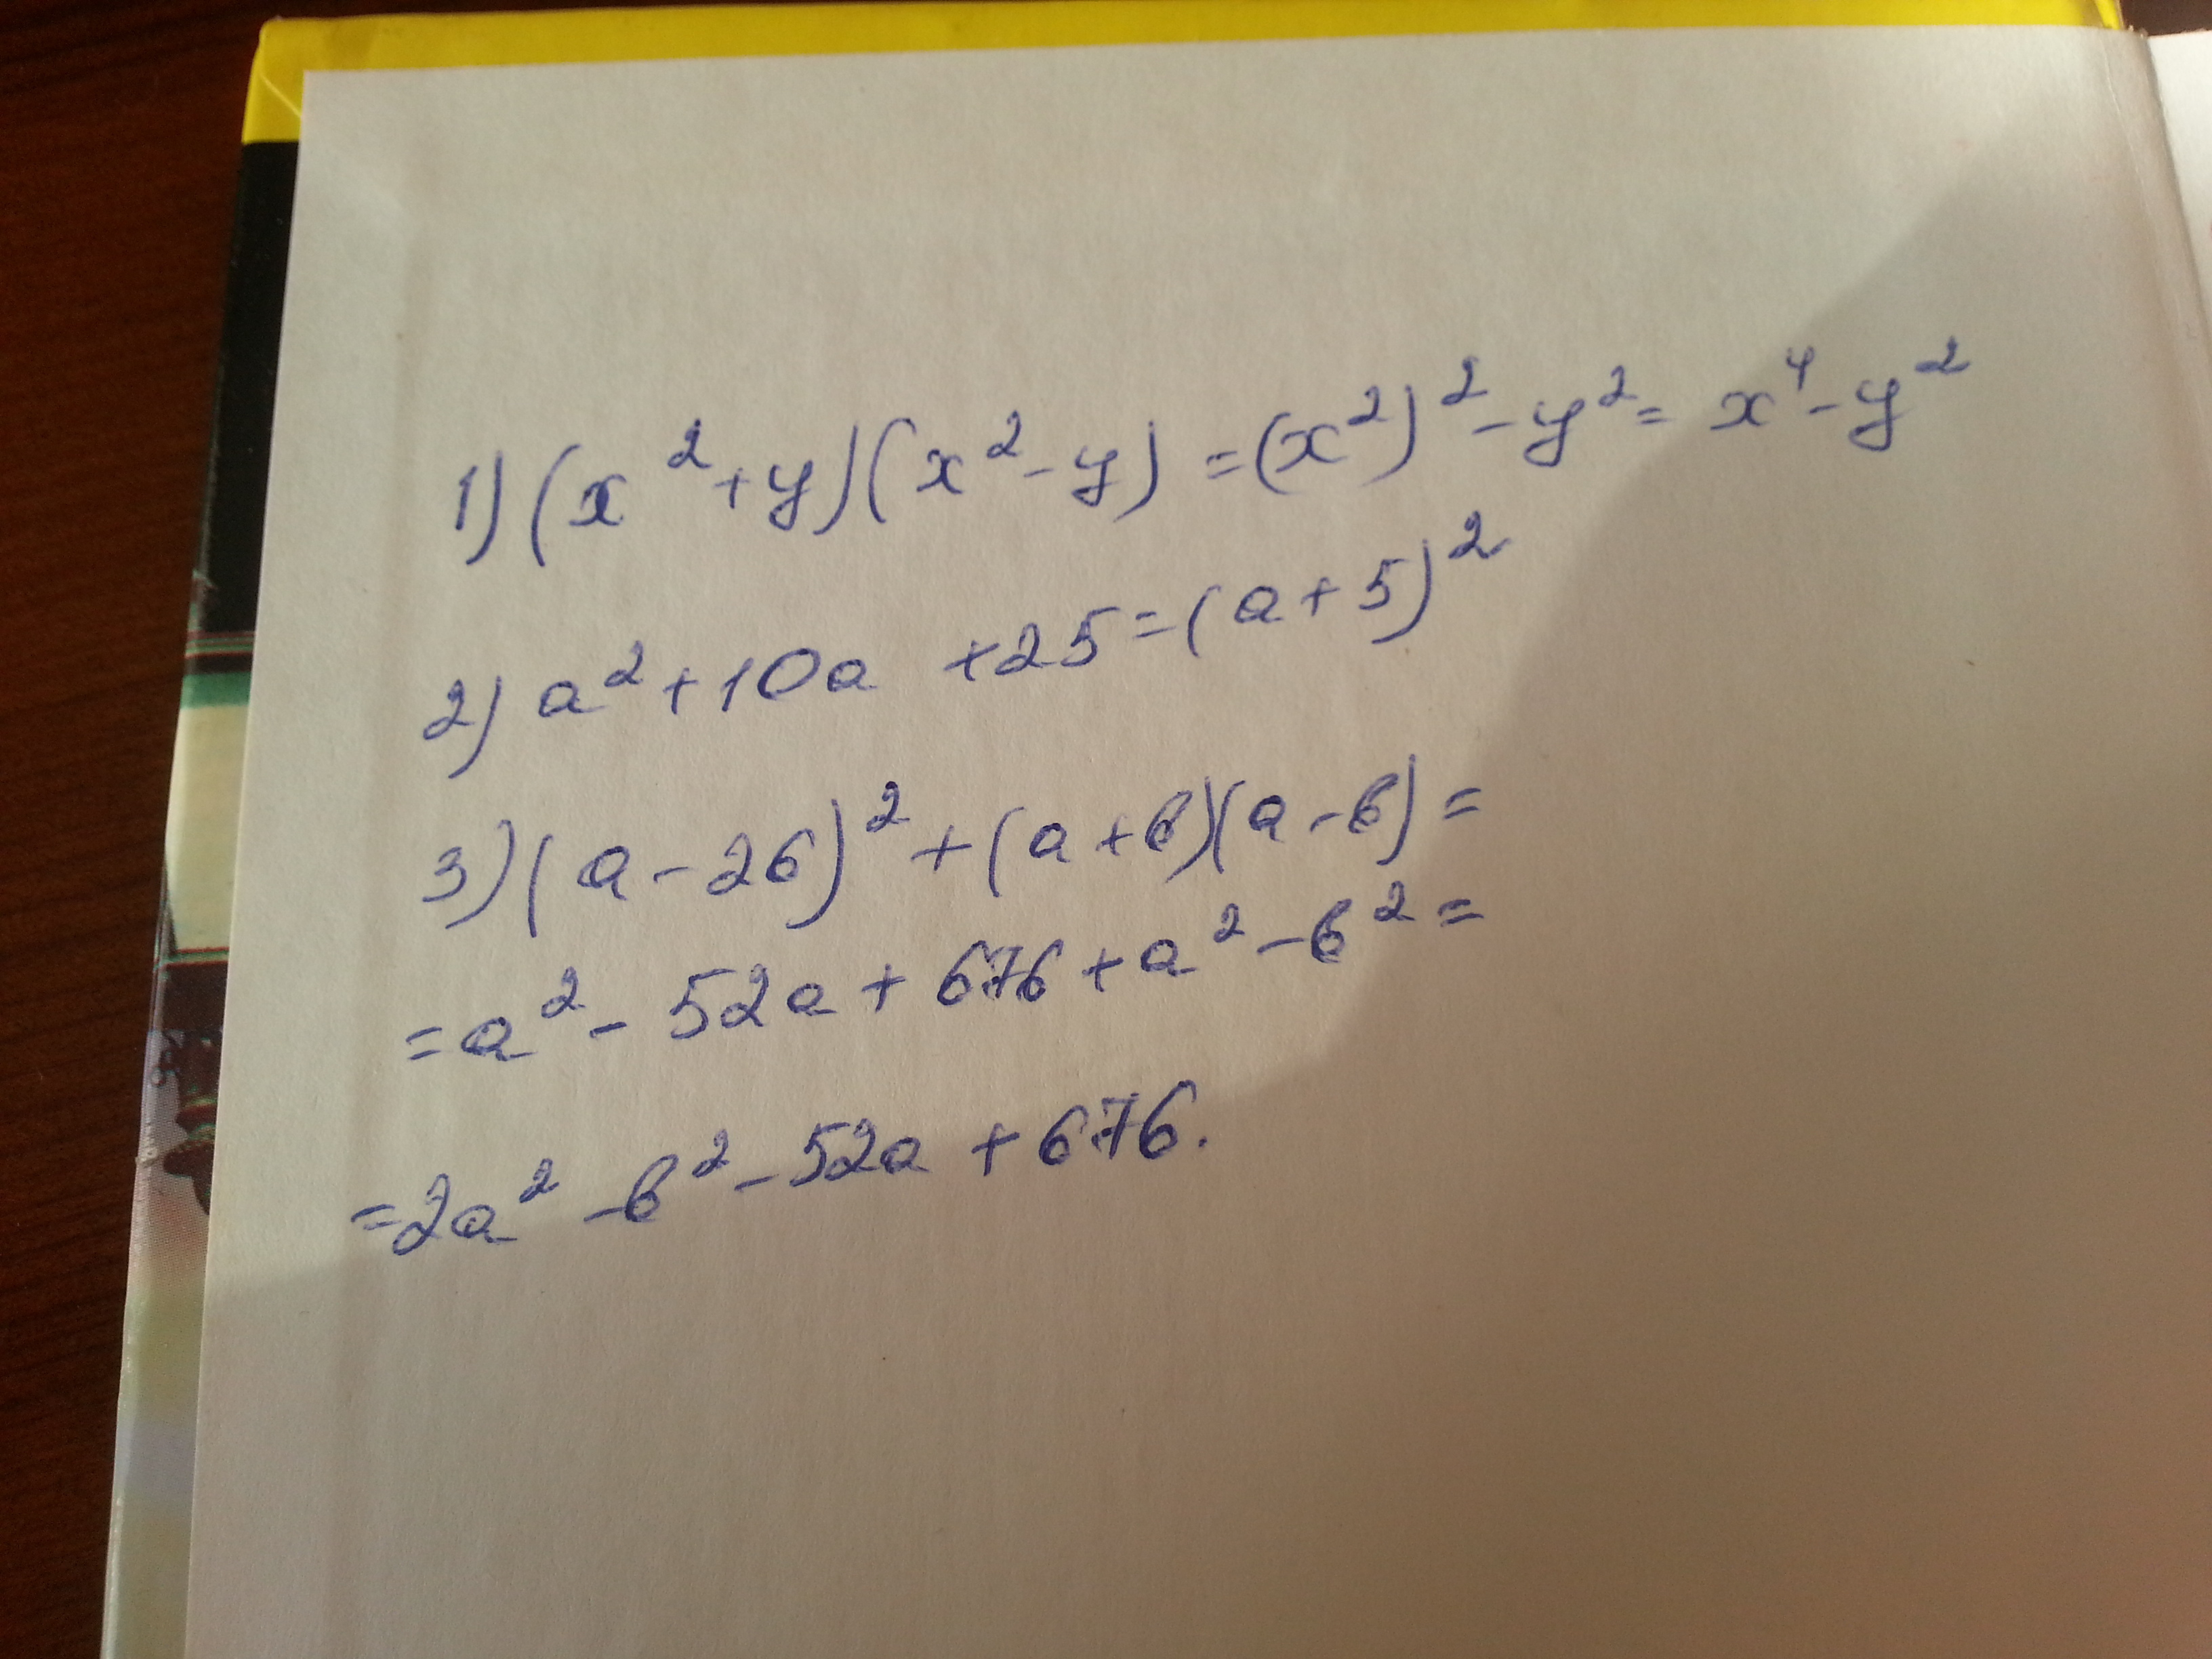 1) (x²+y)(x²-y) = (x²)²-y² = x⁴-y²
2) a²+10a +25=(a+5)²
3) (a-26)²+(a+в)(a-в)=
=a²-52a+676+a²-в²=
=2a²-в²-52a+676.